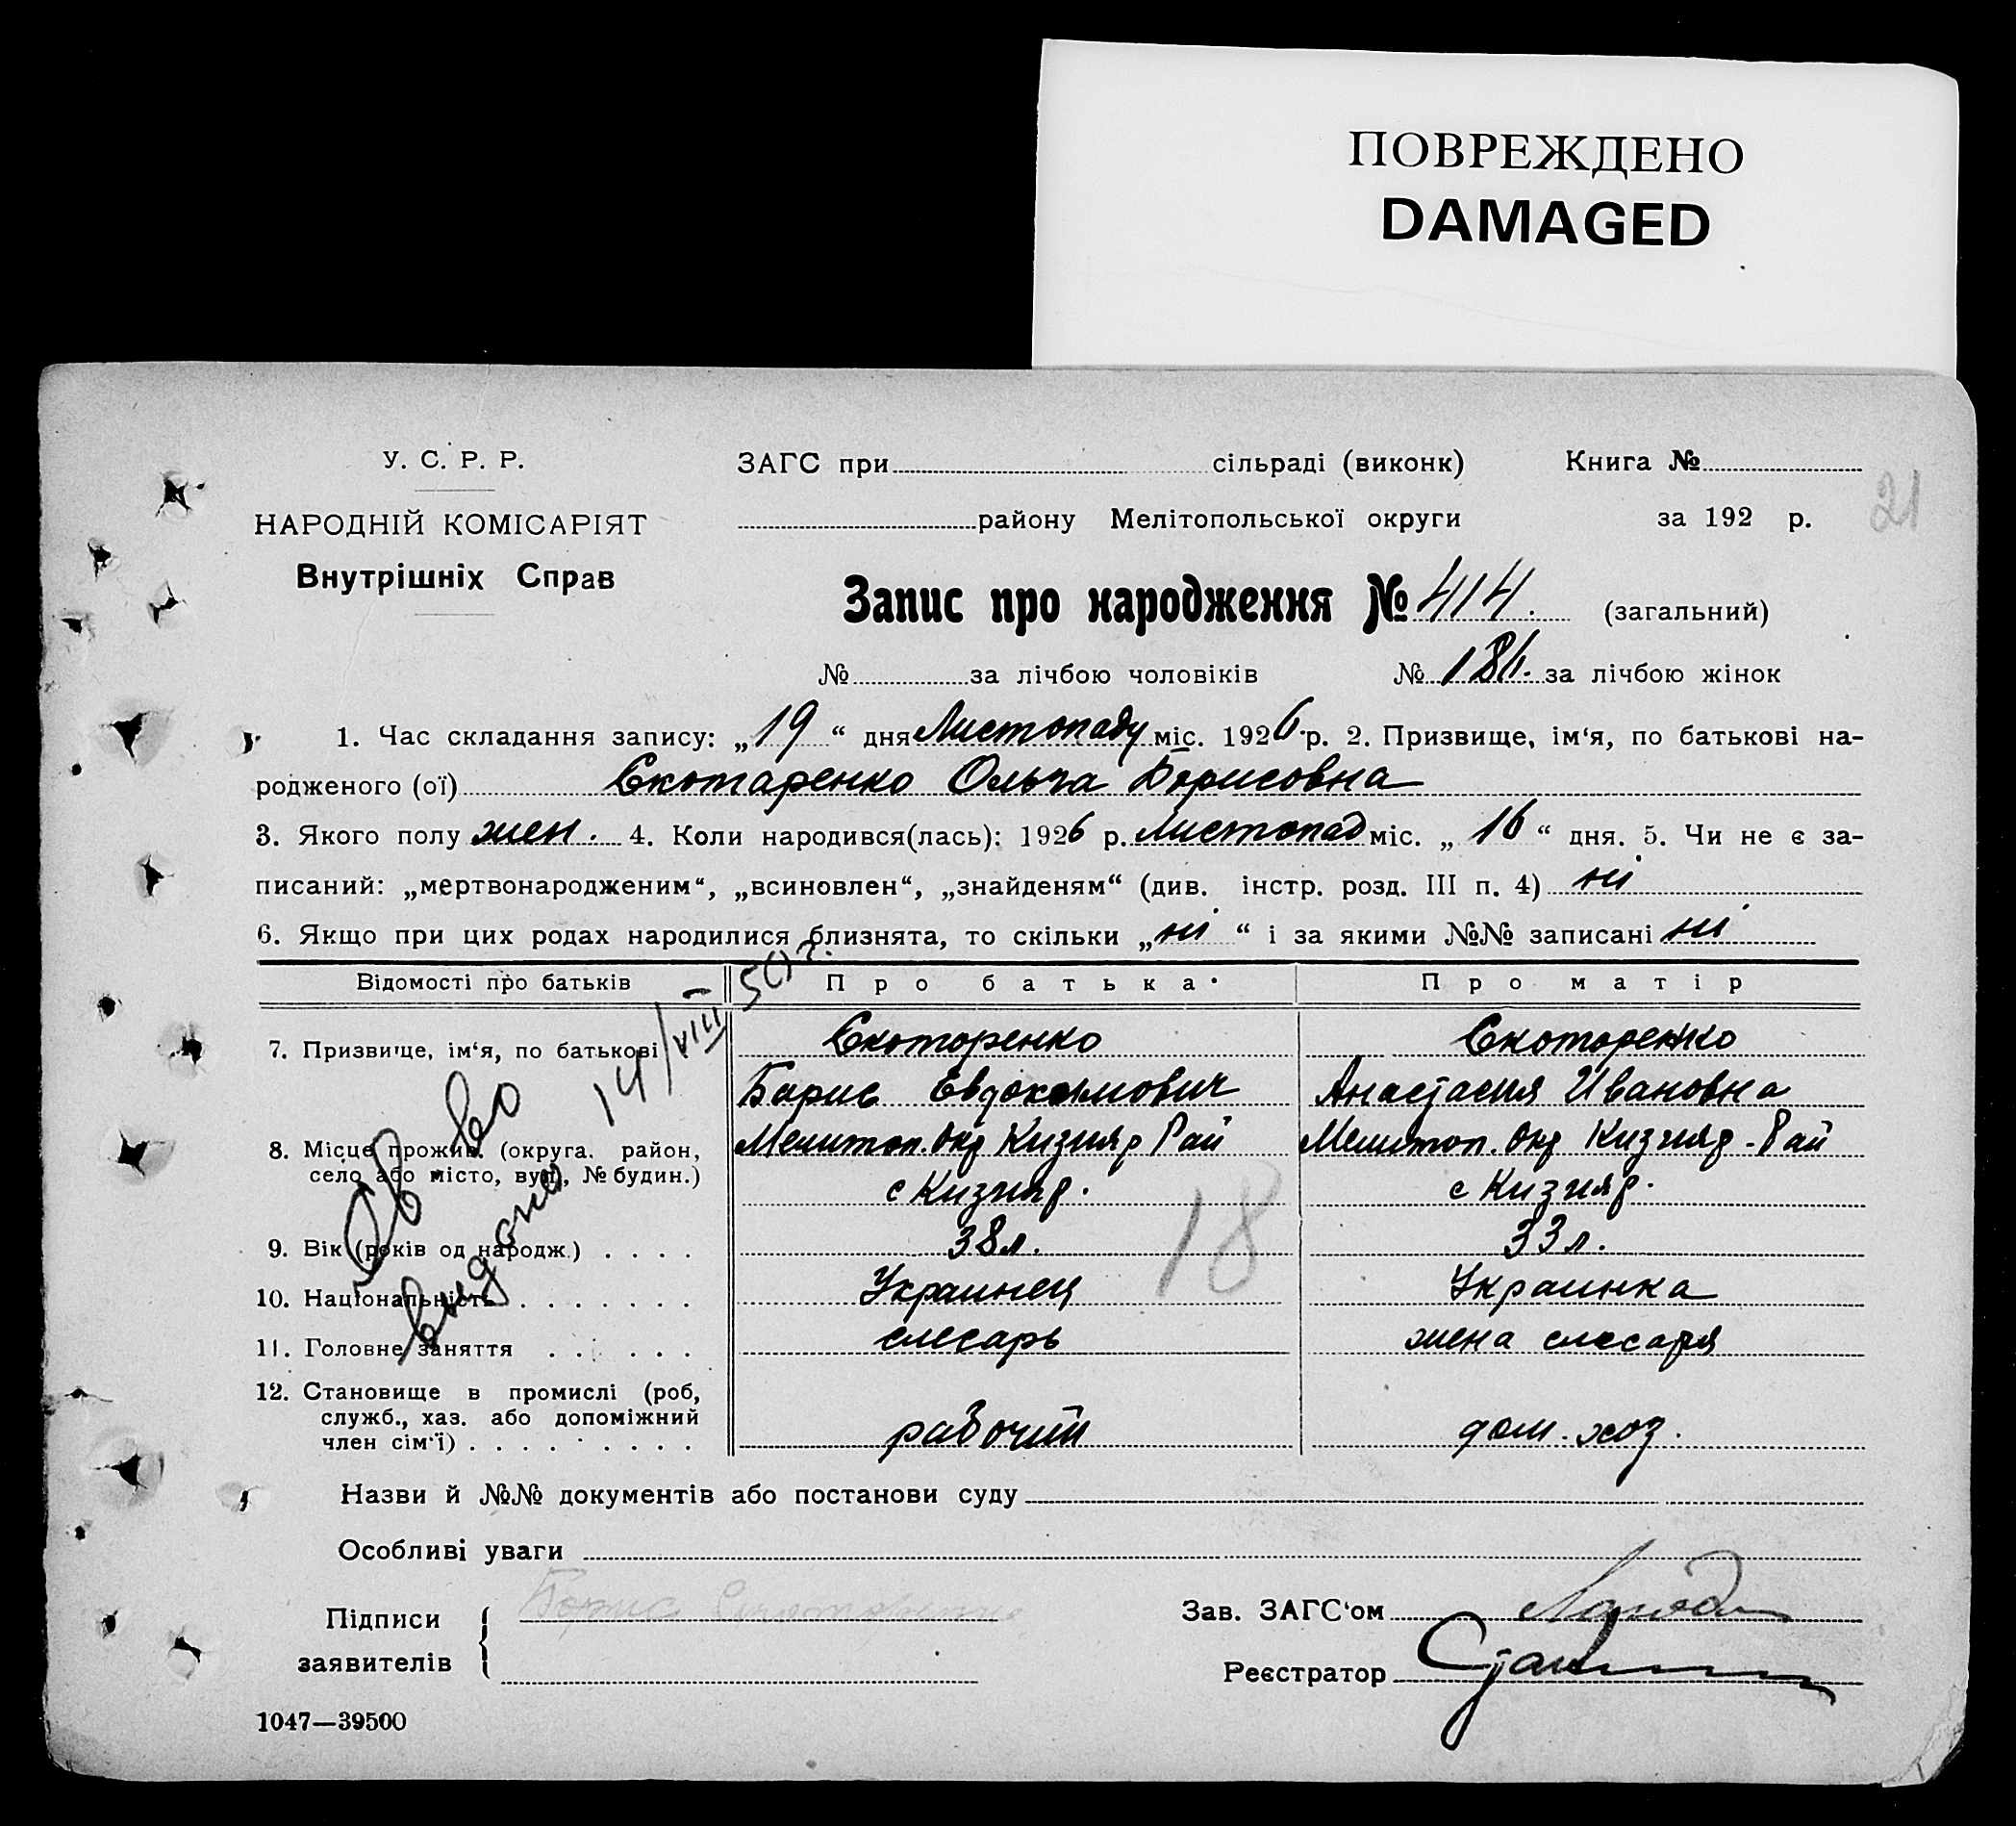 ПОВРЕЖДЕНО
DAMAGED
У. С. Р. Р.
НАРОДНІЙ КОМІСАРІЯТ
Внутрішніх Справ
ЗАГС при сільраді (виконк) Книга №
району Мелітопольської округи за 192 р.
21
Запис про народження № 414. (загальний)
№ за лічбою чоловіків № за лічбою жінок
1. Час складання запису: „19“ дня Листопаду міс. 1926 р. 2. Призвище, ім‘я, по батькові на-
родженого (ої) Скотаренко Ольга Борисовна
3. Якого полу жен. 4. Коли народився(лась): 1926 р. листопад міс. „16“ дня. 5. Чи не є за-
писаний: „мертвонародженим“, „всиновлен“, „знайденям“ (див. інстр. розд. III п. 4) ні
6. Якщо при цих родах народилися близнята, то скільки „ні“ і за якими №№ записані ні
Відомості про батьків Про батька Про матір
7. Призвище, ім‘я, по батькові Скоторенко Скоторенко
Борис Евдокимович Анастасия Ивановна
8. Місце прожив. (округа, район, Мелитоп. Окр Кизияр Рай Мелитоп. Окр Кизияр. Рай
село або місто, вул., № будин.) с Кизияр. с Кизияр.
9. Вік (років од народж.) 38л. 33л.
10. Національність Украинец Украинка
11. Головне заняття слесарь жена слесаря
12. Становище в промислі (роб,
служб., хаз. або допоміжний
член сім‘ї) рабочий дом. хоз.
18
св во
выдано 14/VIII 50 г.
Назви й №№ документів або постанови суду
Особливі уваги
Підписи Борис Скоторенко
заявителів
Зав. ЗАГС‘ом
Реєстратор
1047—39500